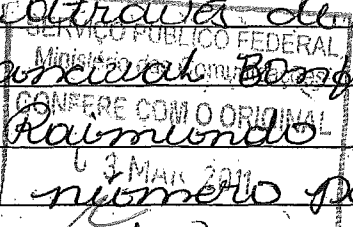 através de
SERVIÇO PÚBLICO FEDERAL
Ministério das Comunicações
CONFERE COM O ORIGINAL
Raimundo
MAR 2011
número